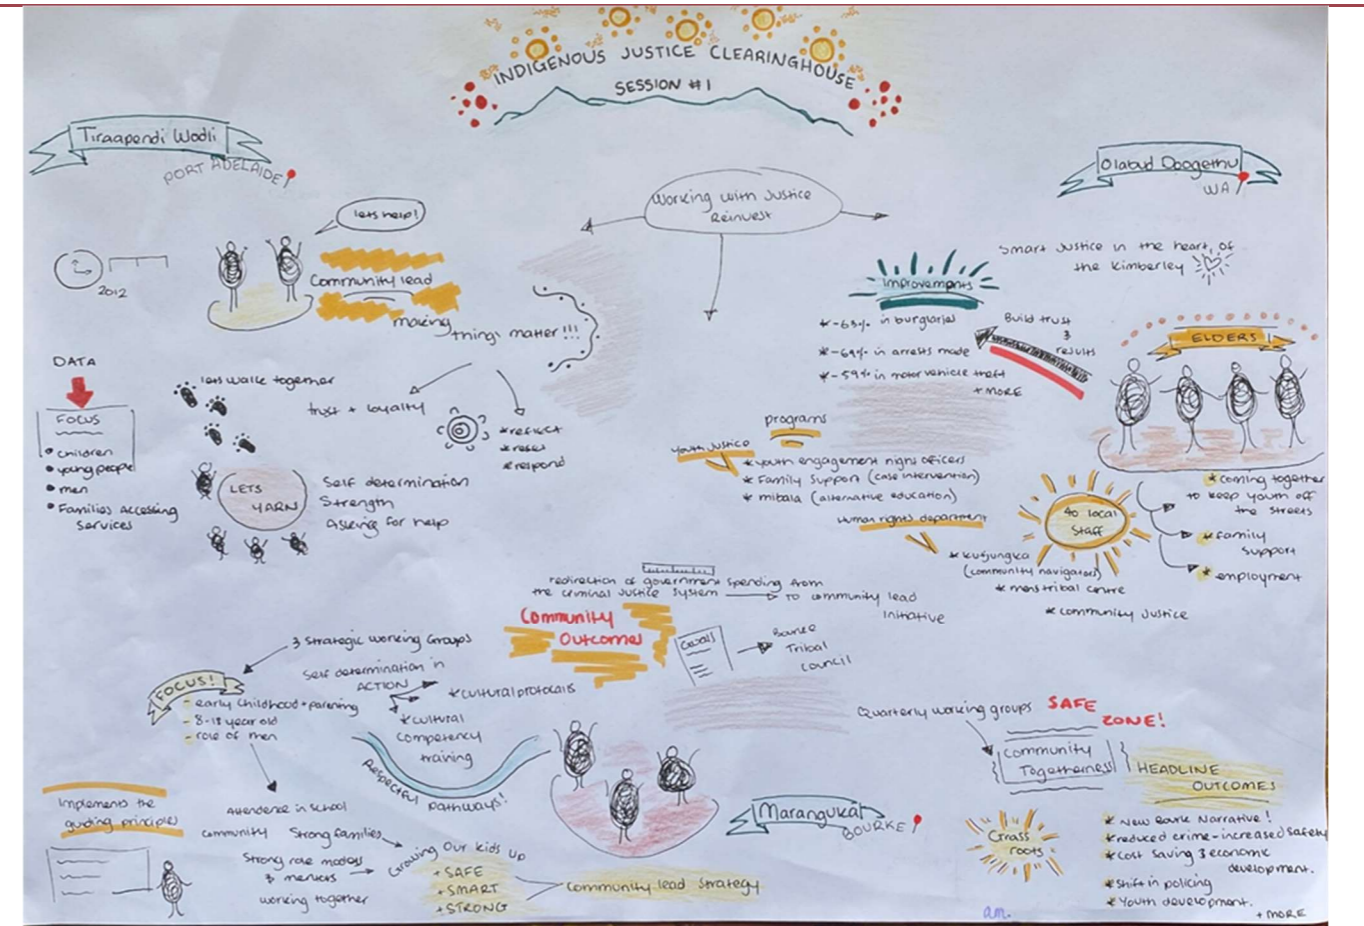 INDIGENOUS JUSTICE CLEARINGHOUSE
SESSION #1
Tiraapendi Wodli
PORT ADELAIDE
Working with Justice
Reinvest
Olabud Doogethu
WA
lets help!
2012
Community lead
making
things matter!!!
DATA
FOCUS
• children
• young people
• men
• Families accessing
services
lets walk together
trust + loyalty
* reflect
* reset
* respond
LETS
YARN
Self determination
Strength
Asking for help
Smart Justice in the heart, of
the Kimberley
Improvements
* -63% in burglaries
* -69% in arrests made
* -59% in motor vehicle theft
+ MORE
Build trust
&
results
ELDERS
programs
Youth Justice
* youth engagement night officers
* Family Support (case intervention)
* mibala (alternative education)
Human rights department
* kutjungka
(community navigators)
* mens tribal centre
* community justice
40 local
Staff
* coming together
to keep youth off
the streets
* family
support
* employment
redirection of government spending from
the criminal justice system
to community lead
initiative
Community
Outcomes
Bourke
Tribal
council
3 strategic working Groups
Self determination in
ACTION
* cultural protocals
* cultural
competency
training
FOCUS!
- early childhood + parenting
- 8-18 year old
- role of men
Respectful pathways!
Implements the
guiding principles
Attendence in school
community
Strong families
Strong role models
& mentors
working together
Growing Our kids up
+ SAFE
+ SMART
+ STRONG
Community lead strategy
Maranguka
BOURKE
Quarterly working groups
SAFE
ZONE!
Community
Togetherness
HEADLINE
OUTCOMES
Grass
roots
* New Bourke Narrative!
* reduced crime - increased safety
* Cost saving & economic
development.
* Shift in policing
* Youth development.
+ MORE
a.m.